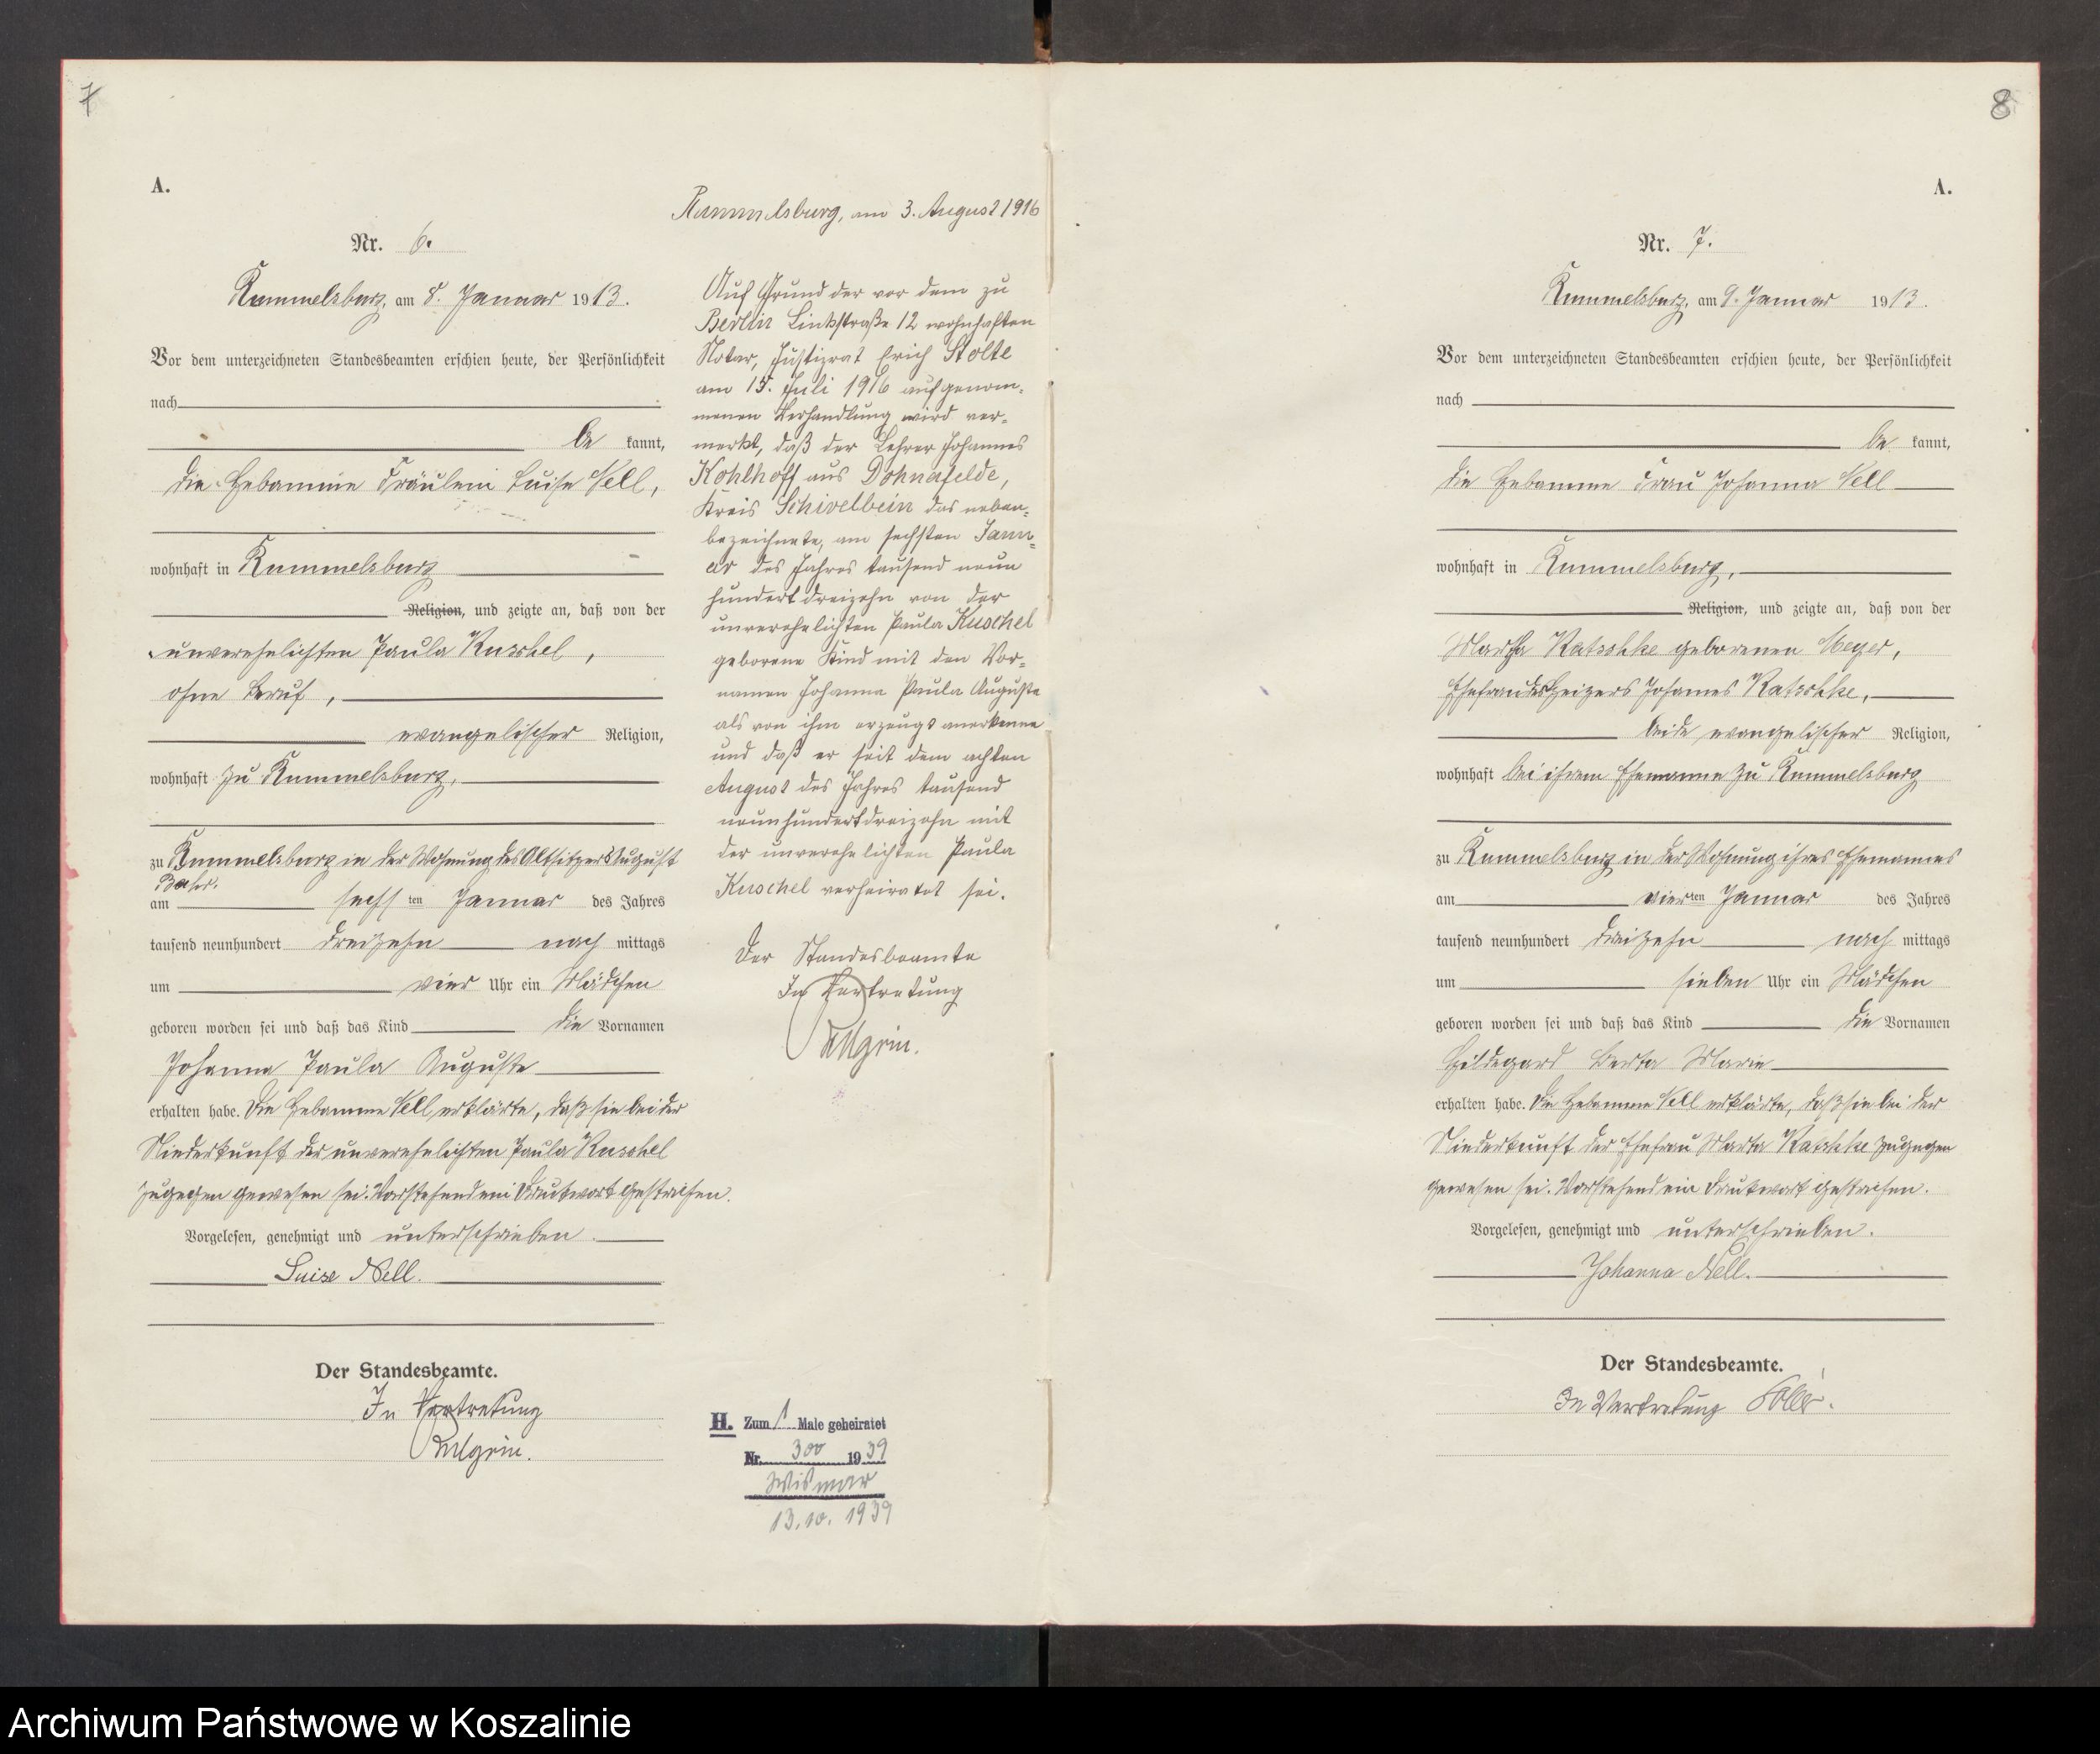 7
A.
Nr. 6.
Rummelsburg, am 8. Januar 1913.
Vor dem unterzeichneten Standesbeamten erschien heute, der Persönlichkeit
nach
be kannt,
die Hebamme Fräulein Luise Nell,
wohnhaft in Rummelsburg
Religion, und zeigte an, daß von der
unverehelichten Paula Kuschel,
ohne Beruf,
evangelischer Religion,
wohnhaft zu Rummelsburg,
zu Rummelsburg in der Wohnung des Altsitzers August
am sechs ten Januar des Jahres
tausend neunhundert dreizehn nach mittags
um vier Uhr ein Mädchen
geboren worden sei und daß das Kind die Vornamen
Johanna Paula Auguste
erhalten habe. Die Hebamme Nell erklärte, daß sie bei der
Niederkunft der unverehelichten Paula Kuschel
zugegen gewesen sei. Vorstehend ein Druckwort gestrichen.
Vorgelesen, genehmigt und unterschrieben.
Luise Nell.
Der Standesbeamte.
In Vertretung
Rummelsburg, am 3. August 1916
Auf Grund der vor dem zu
Berlin Linkstraße 12 wohnhaften
Notar, Justizrat Erich Stolte
am 15. Juli 1916 aufgenom-
menen Verhandlung wird ver-
merkt, daß der Lehrer Johannes
Kohlhoff aus Dohnafelde,
Kreis Schivelbein das neben-
bezeichnete, am sechsten Janu-
ar des Jahres tausend neun
hundert dreizehn von der
unverehelichten Paula Kuschel
geborene Kind mit den Vor-
namen Johanna Paula Auguste
als von ihm erzeugt anerkenne
und daß er seit dem achten
August des Jahres tausend
neunhundertdreizehn mit
der unverehelichten Paula
Kuschel verheiratet sei.
Der Standesbeamte
In Vertretung
H. Zum 1 Male geheiratet
Nr. 300 1939
Wismar
13.10.1939
8
A.
Nr. 7.
Rummelsburg, am 9. Januar 1913.
Vor dem unterzeichneten Standesbeamten erschien heute, der Persönlichkeit
nach
be kannt,
die Hebamme Frau Johanna Nell
wohnhaft in Rummelsburg,
Religion, und zeigte an, daß von der
Martha Ratschke geborenen Meyer,
Ehefrau des Heizers Johannes Ratschke,
beide evangelischer Religion,
wohnhaft bei ihrem Ehemanne zu Rummelsburg
zu Rummelsburg in der Wohnung ihres Ehemannes
am vierten Januar des Jahres
tausend neunhundert dreizehn nach mittags
um sieben Uhr ein Mädchen
geboren worden sei und daß das Kind die Vornamen
Hildegard Berta Marie
erhalten habe. Die Hebamme Nell erklärte, daß sie bei der
Niederkunft der Ehefrau Marta Ratschke zugegen
gewesen sei. Vorstehend ein Druckwort gestrichen.
Vorgelesen, genehmigt und unterschrieben.
Johanna Nell.
Der Standesbeamte.
In Vertretung
Archiwum Państwowe w Koszalinie